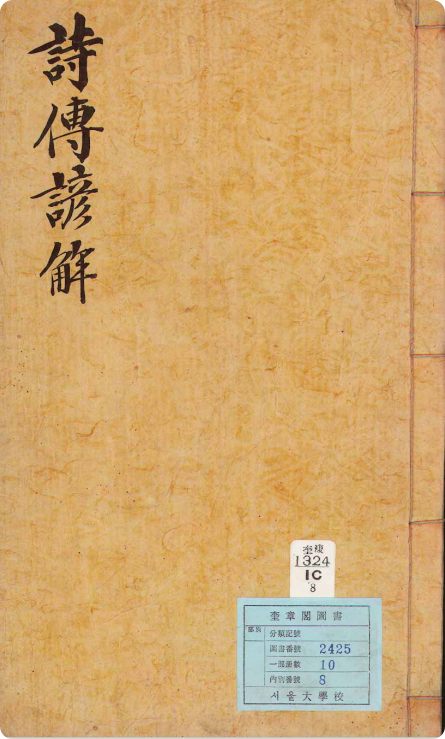 詩傳諺解
奎複
1324
1C
8
奎章閣圖書
部類
分類記號
圖書番號 2425
一部冊數 10
內別番號 8
서울大學校